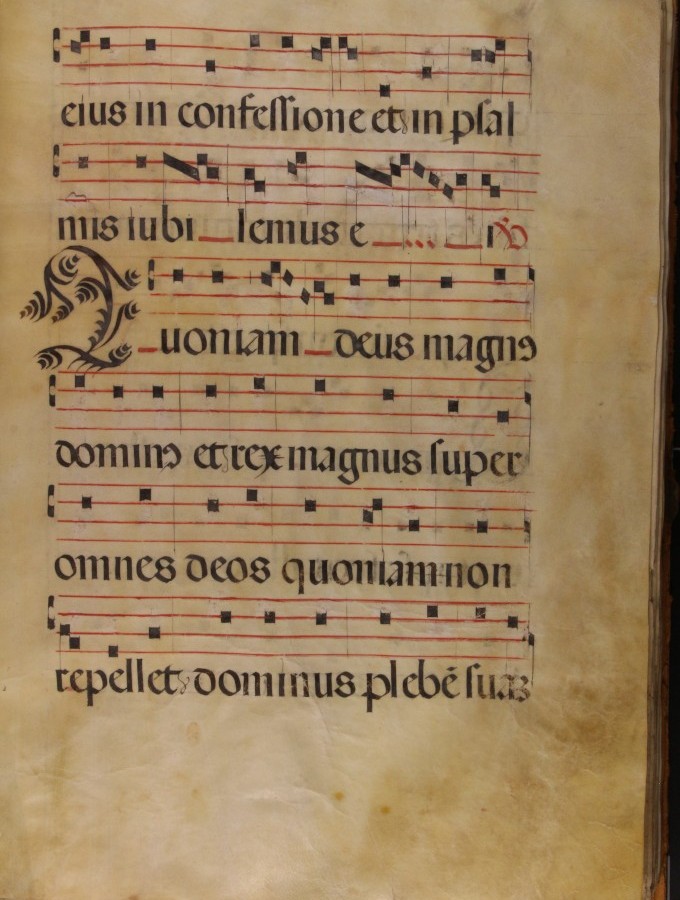 eius in confessione et in psal
mis iubi lemus e i
Quoniam deus magno
domino et rex magnus super
omnes deos quoniam non
repellet dominus plebē suaz